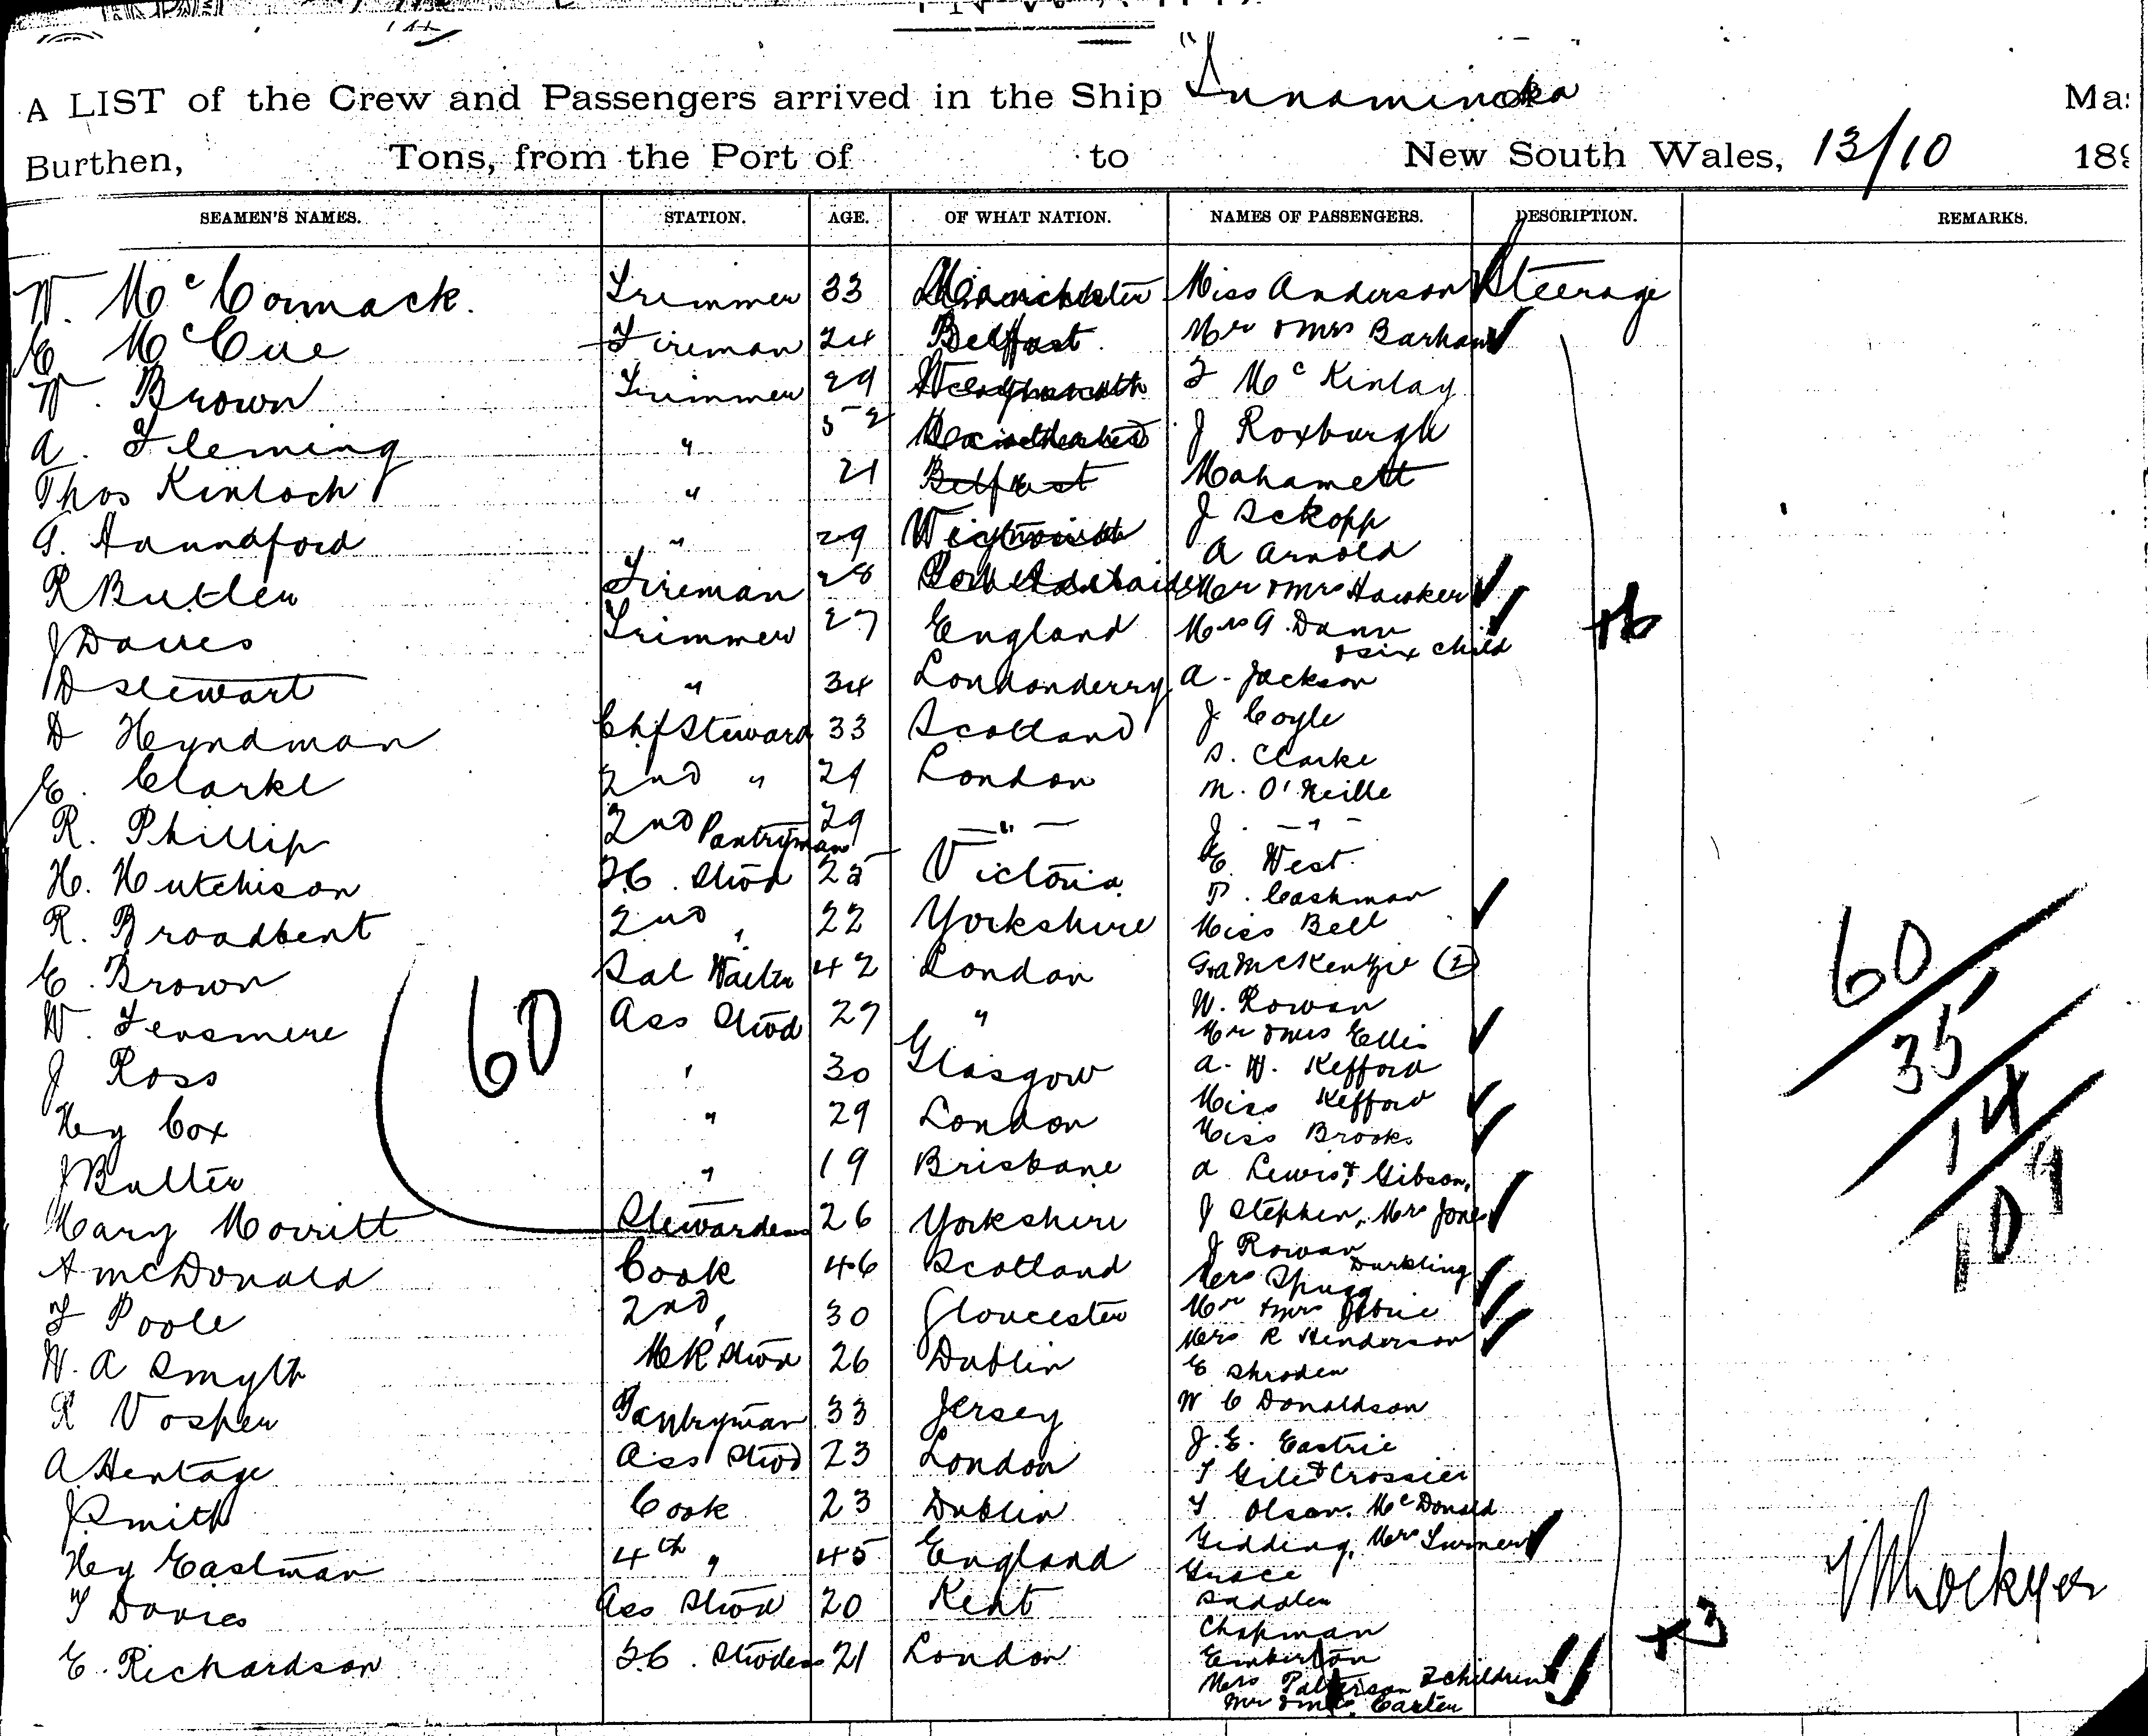 A LIST of the Crew and Passengers arrived in the Ship "Innamincka Mas
Burthen, Tons, from the Port of to New South Wales, 13/10 189
SEAMEN'S NAMES. STATION. AGE. OF WHAT NATION. NAMES OF PASSENGERS. DESCRIPTION. REMARKS.
W. McCormack. Trimmer 33 Manchester Miss Anderson Steerage
E McCue Fireman 24 Belfast Mr & Mrs Barham
W. Brown Trimmer 29 Weymouth F McKinlay
A. Fleming " 52 J Roxburgh
Thos Kinloch " 21 Belfast Mahamett
G. " 29 J Sckopp
A Arnold
R Butler Fireman 28 Port Adelaide Mr & Mrs Hawker
J Davies Trimmer 27 England Mrs G. Dann
& six child
D Stewart " 34 Londonderry A. Jackson
D Hyndman Chf Steward 33 Scotland J Coyle
E. Clarke 2nd " 29 London S. Clarke
M. O'Neille
R. Phillip 2nd Pantryman 29 — " — J. - " -
H. Hutchison F.C. Stwd 25 Victoria E West.
P. Cashman
R. Broadbent 2nd " 22 Yorkshire Miss Bell
E. Brown Sal Waiter 42 London McKenzie (2)
W. Ass Stwd 27 " W. Rowan
Mr & Mrs Ellis
J Ross " 30 Glasgow A. W. Kefford
Hy Cox " 29 London Miss Kefford
Miss Brooks
J Butler " 19 Brisbane A Lewis & Gibson,
Mary Morritt Stewardess 26 Yorkshire J Stephen, Mrs Jones
J Rowan
A McDonald Cook 46 Scotland Mrs Spugg Durkling
F Poole 2nd " 30 Gloucester Mr & Mrs
Mrs R Henderson
W. A Smyth Stwd 26 Dublin E Shroden
R Vosper Pantryman 33 Jersey W C Donaldson
J. E. Eastrie
A Hentage Ass Stwd 23 London T Gile & Crossier
J Smith Cook 23 Dublin T Olsen. McDonald
Hy Eastman 4th " 45 England Gidding, Mrs Turner
Grace
T Davies Ass Stwd 20 Kent Saddler
Chapman
E. Richardson F.C. Stwdess 21 London Emberton
Mrs Patterson 2 children
Mr & Mrs Carter
60
60
35
14
109
+6
+3